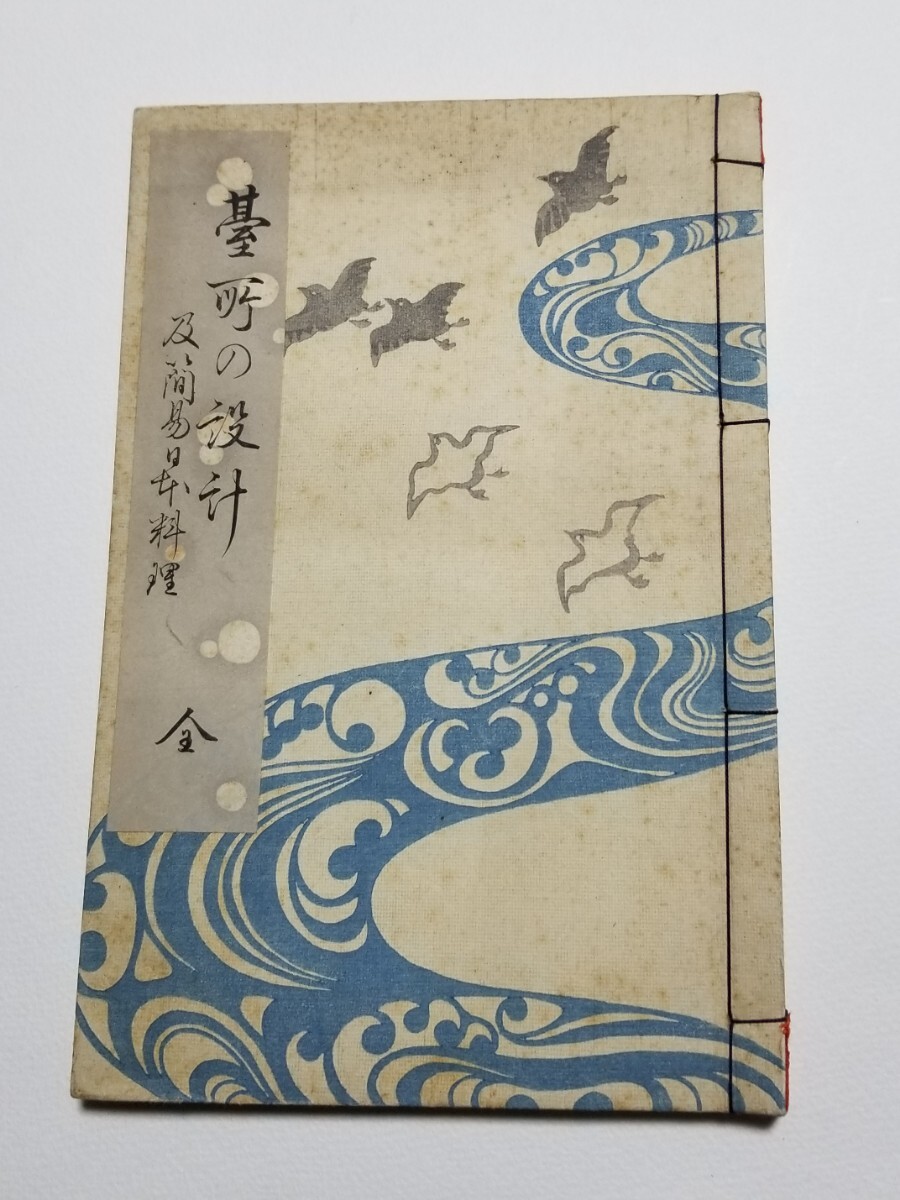 臺所の設計
及簡易日本料理
全